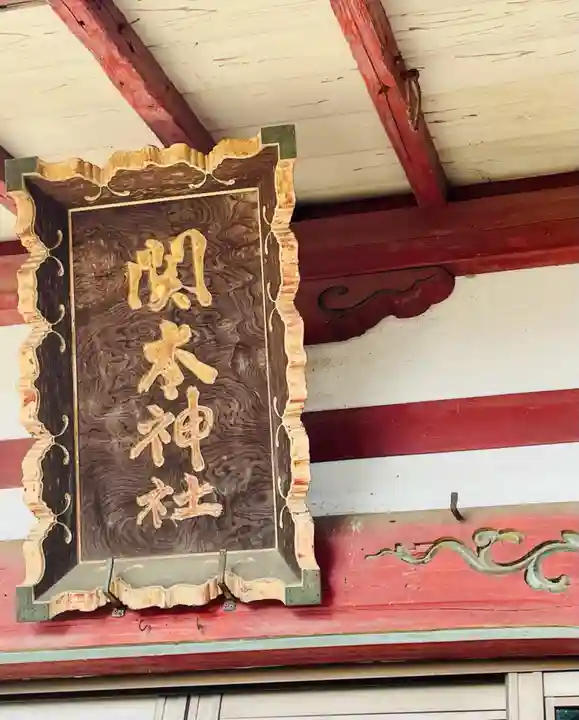 関本神社